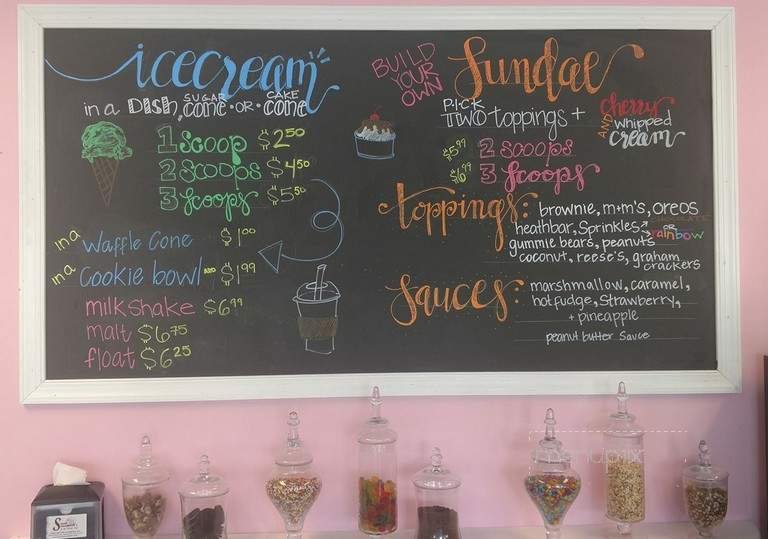 icecream
in a DISH, SUGAR CONE - OR - CAKE CONE
1 Scoop $2.50
2 Scoops $4.50
3 Scoops $5.50
in a Waffle Cone $1.00
in a Cookie bowl ADD $1.99
milkshake $6.99
malt $6.75
float $6.25
BUILD YOUR OWN Sundae
PICK TWO toppings + cherry AND whipped cream
$5.99 2 scoops
$6.99 3 scoops
toppings: brownie, m+m's, oreos
heathbar, Sprinkles CHOCOLATE OR rainbow
gummie bears, peanuts
coconut, reese's, graham crackers
Sauces: marshmallow, caramel,
hot fudge, Strawberry,
+ pineapple
peanut butter sauce
menupix